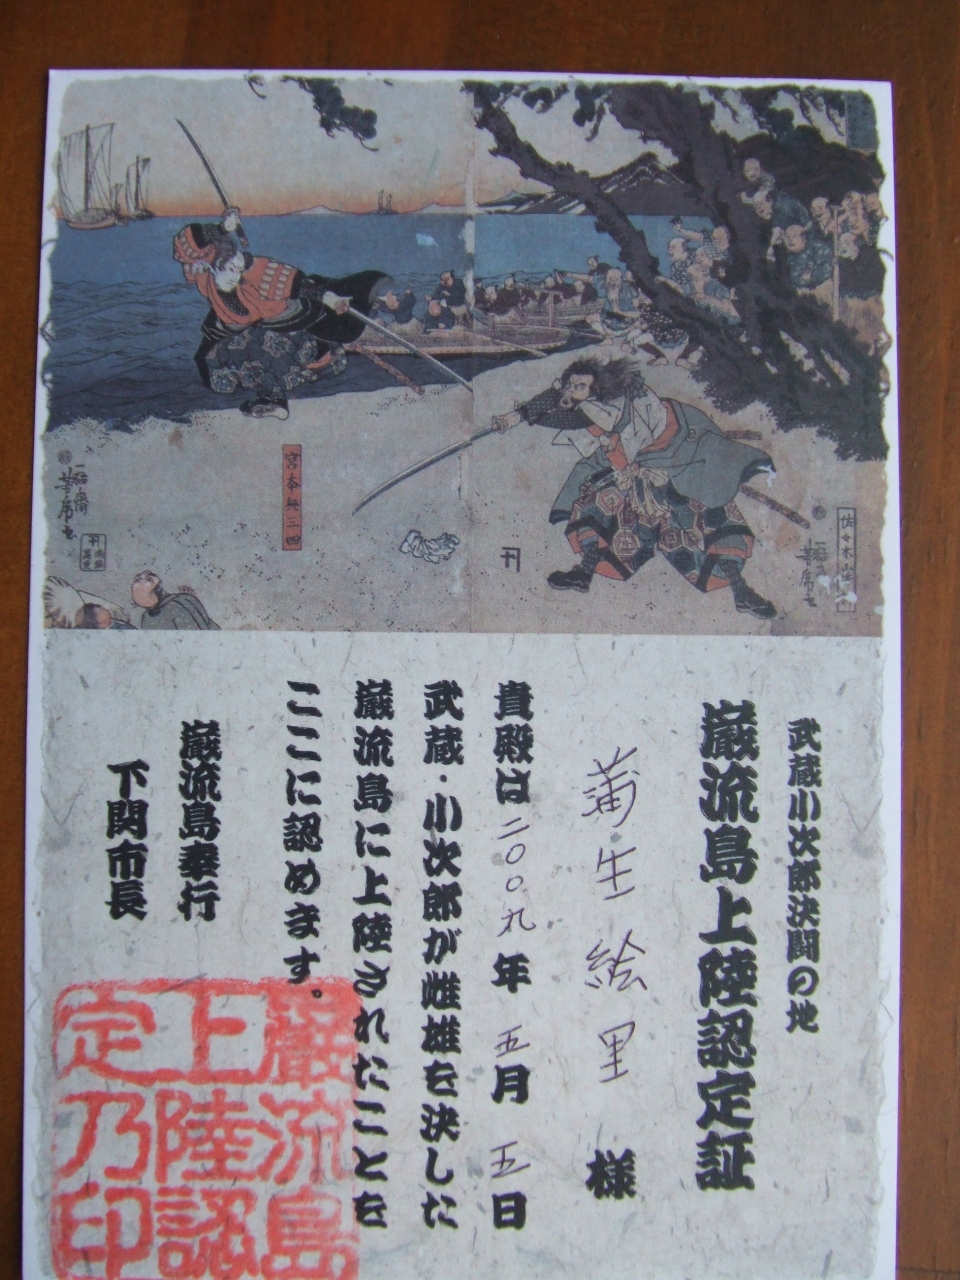 武蔵小次郎決闘の地
巌流島上陸認定証
蒲生絵里 様
貴殿は二〇〇九年 五月 五日
武蔵・小次郎が雌雄を決した
巌流島に上陸されたことを
ここに認めます。
巌流島奉行
下関市長
巌流島
上陸認
定乃印
宮本無三四